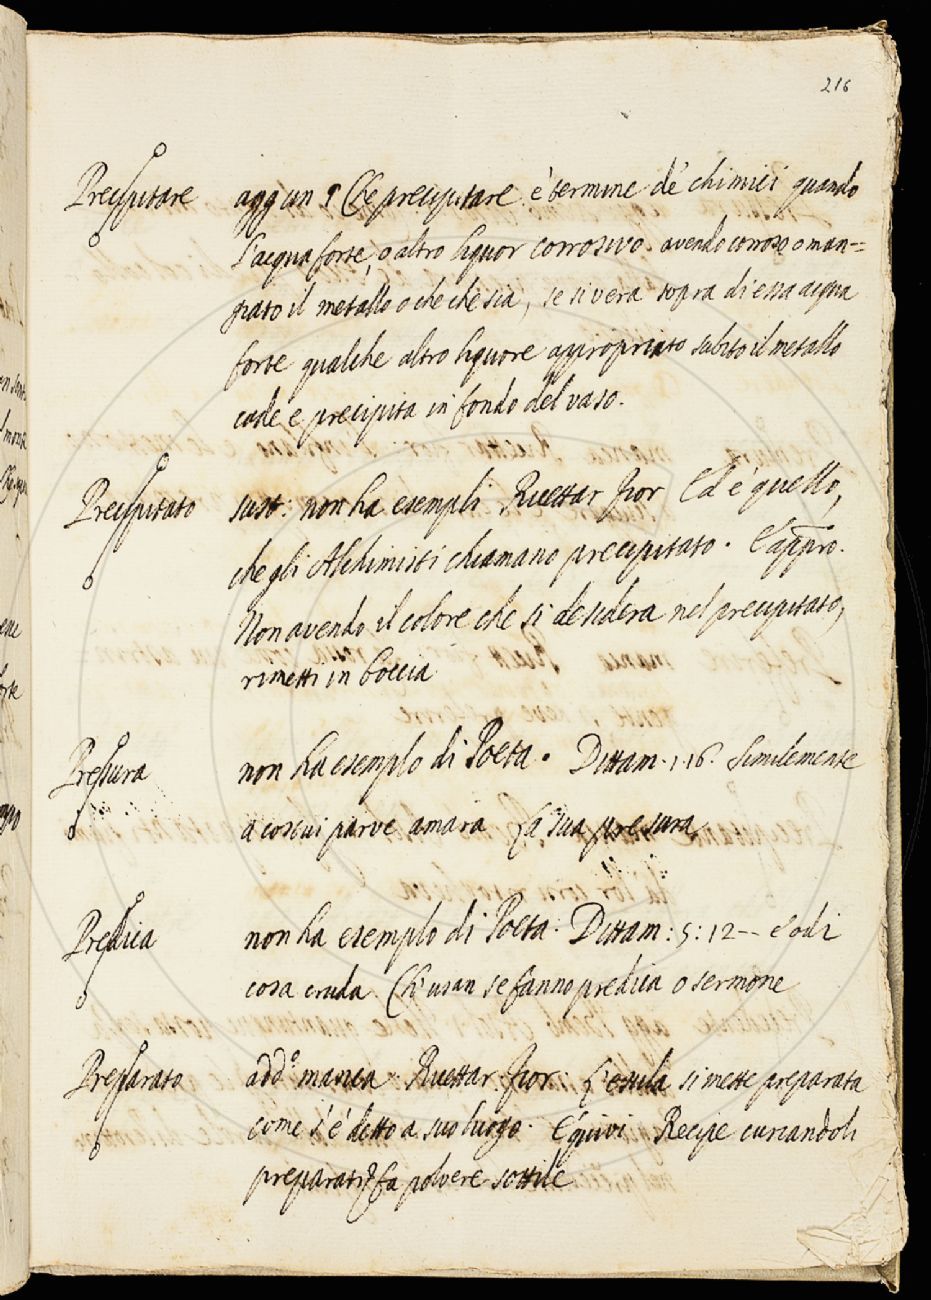 216
Precipitare agg un § Che precipitare è termine de' chimici quando
l'acqua forte, o altro liquor corrosivo. avendo corroso o man=
giato il metallo o che che sia, se si versa sopra di essa acqua
forte qualche altro liquore appropriato subito il metallo
cade e precipita in fondo del vaso.
Precipitato sust: non ha esempli Ricettar Fior Ed è quello,
che gli Alchimisti chiamano precipitato. E appro.
Non avendo il colore che si desidera nel precipitato,
rimetti in boccia
Pressura non ha esemplo di Poeta. Dittam. 1.16. Similemente
a costui parve amara la sua pressura
Predica non ha esemplo di Poeta. Dittam: 5:12-- e odi
cosa cruda Ch'usan se fanno predica o sermone
Preparato add.o manca Ricettar Fior: l'estula si mette preparata
come s'è detto a suo luogo. E quivi Recipe curiandoli
preparati fa polvere sottile